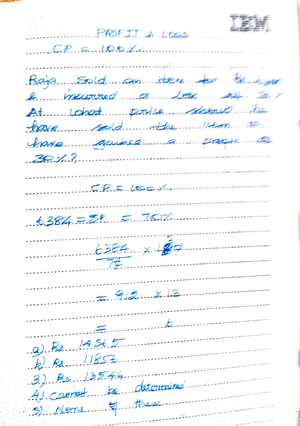 IBM
PROFIT & LOSS
C.P. = 100%
Raja Sold an item for Rs
& incurred a loss of %
At what price should he
have sold the item to
have gained a of
30%?
C.P. = 100%
6384 = S.P. = 70%
6384 × 1
= 912 × 13
=
a) Rs. 14565
b) Rs. 11856
3) Rs. 13544
4) cannot be determined
5) None of these